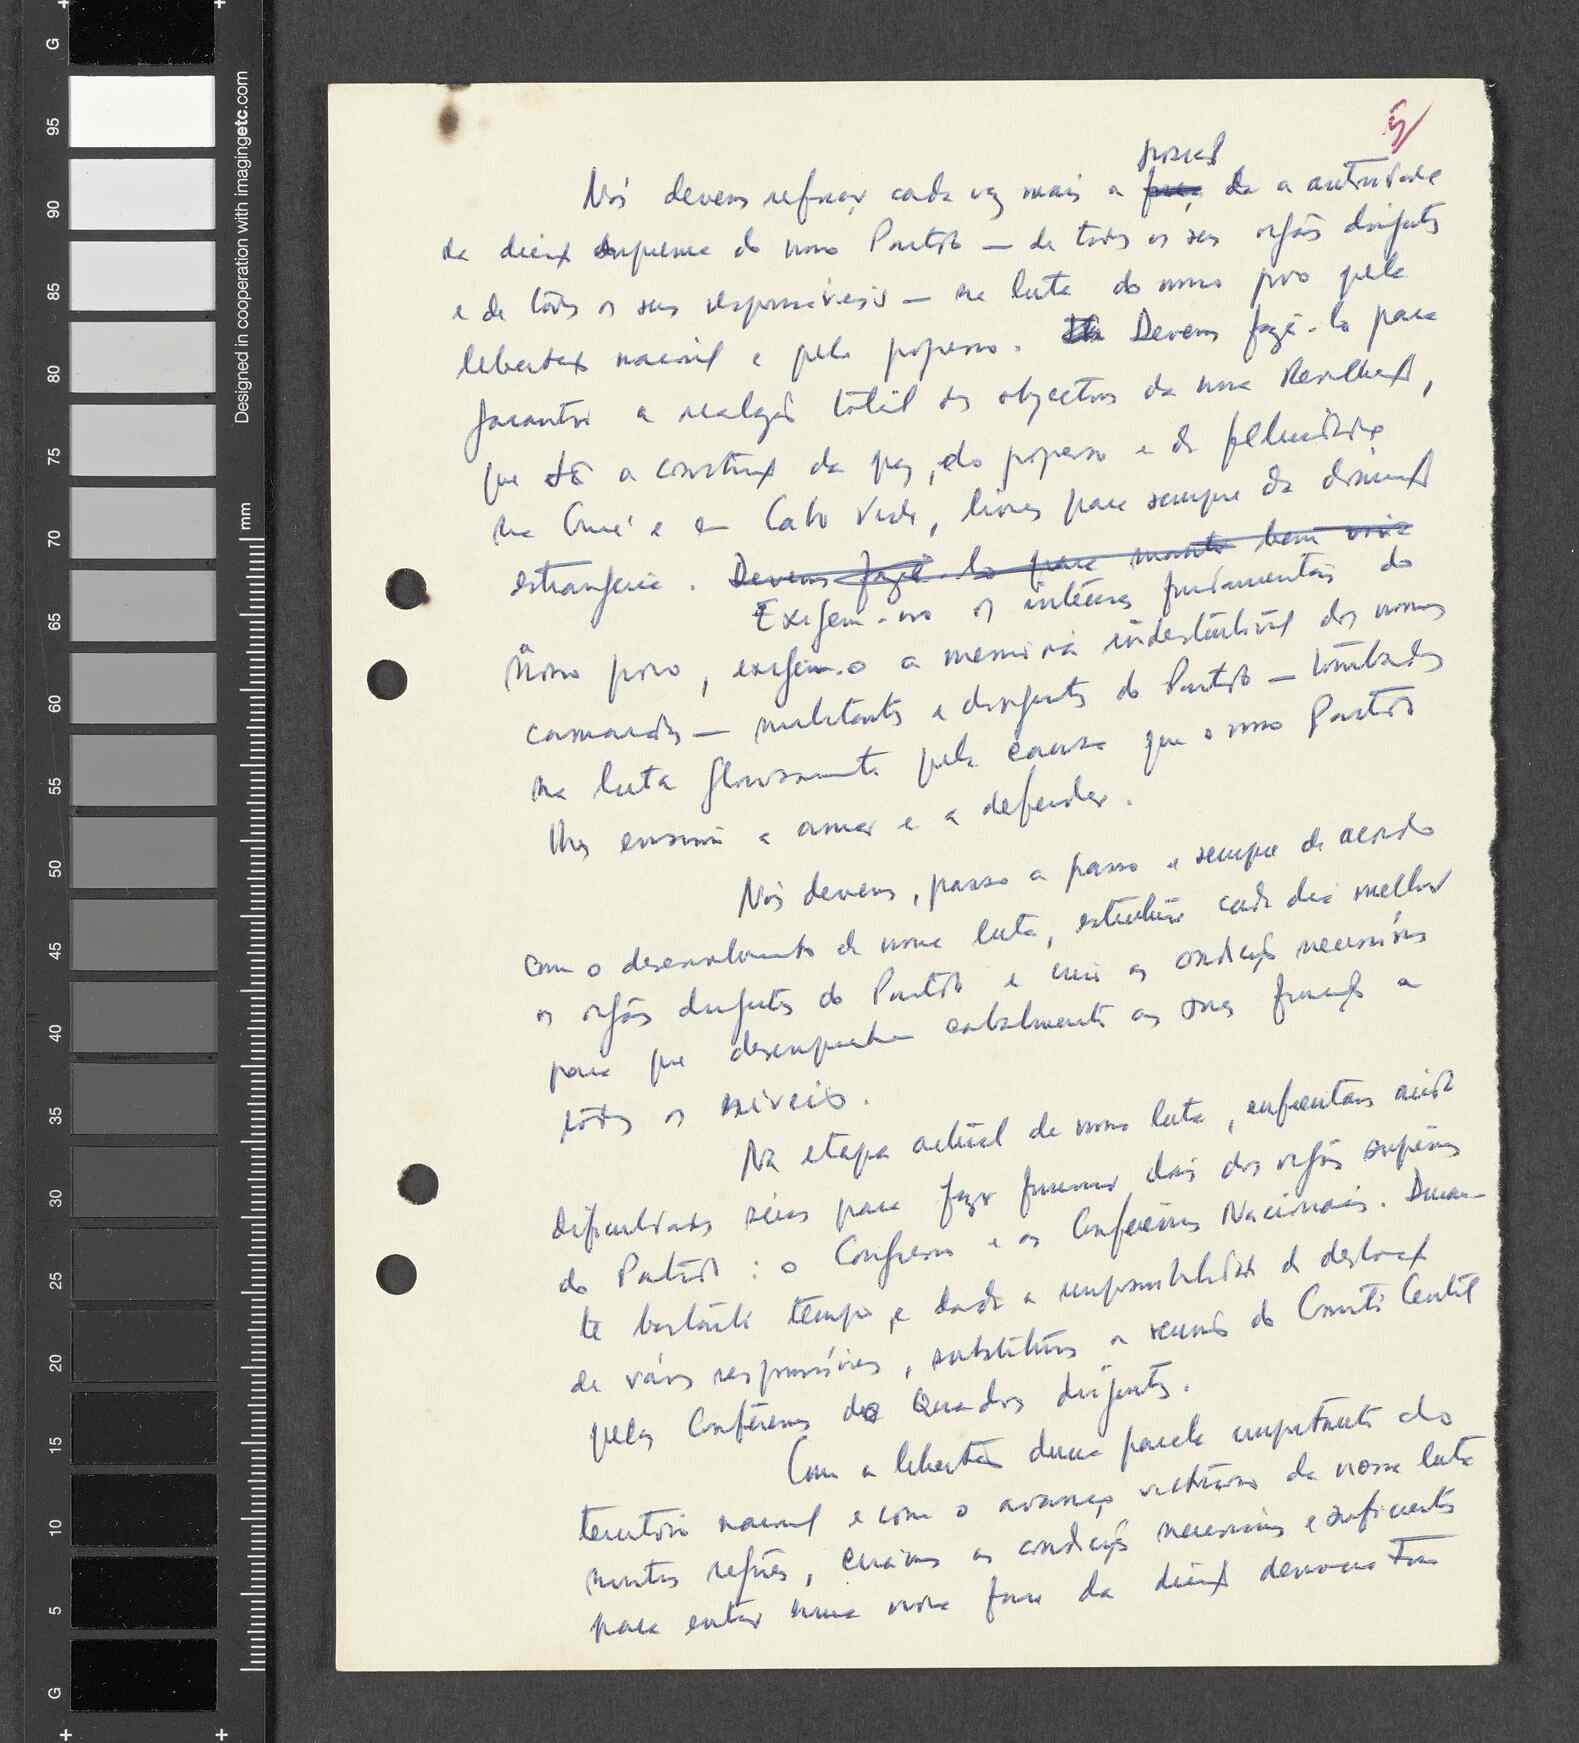 5
posição
Nós devemos reforçar cada vez mais a da a autoridade
da direcção suprema do nosso Partido — de todos os seus orgãos dirigentes
e de todos os seus responsáveis — na luta do nosso povo pela
libertação nacional e pelo progresso. Devemos fazê-lo para
garantir a realização total dos objectivos da nossa Revolução,
que são a construção da paz, do progresso e da felicidade
na Guiné e em Cabo Verde, livres para sempre da dominação
estrangeira. Devemos fazê-lo para bem
Exigem-no os interesses fundamentais do
Nosso povo, exige-o a memória indestrutível dos nossos
camaradas — militantes e dirigentes do Partido — tombados
na luta gloriosamente pela causa que o nosso Partido
lhes ensinou a amar e a defender.
Nós devemos, passo a passo e sempre de acordo
com o desenvolvimento da nossa luta, estruturar cada dia melhor
os orgãos dirigentes do Partido e criar as condições necessárias
para que desempenhem cabalmente as suas funções a
todos os níveis.
Na etapa actual da nossa luta, enfrentamos ainda
dificuldades sérias para fazer funcionar dois dos orgãos superiores
do Partido: o Congresso e as Conferências Nacionais. Duran-
te bastante tempo, e dada a impossibilidade de deslocação
de vários responsáveis, substituímos as reuniões do Comité Central
pelas Conferências dos Quadros dirigentes.
Com a libertação duma parcela importante do
território nacional e com o avanço vitorioso da nossa luta
nontras regiões, criámos as condições necessárias e suficientes
para entrar numa nova fase da direcção